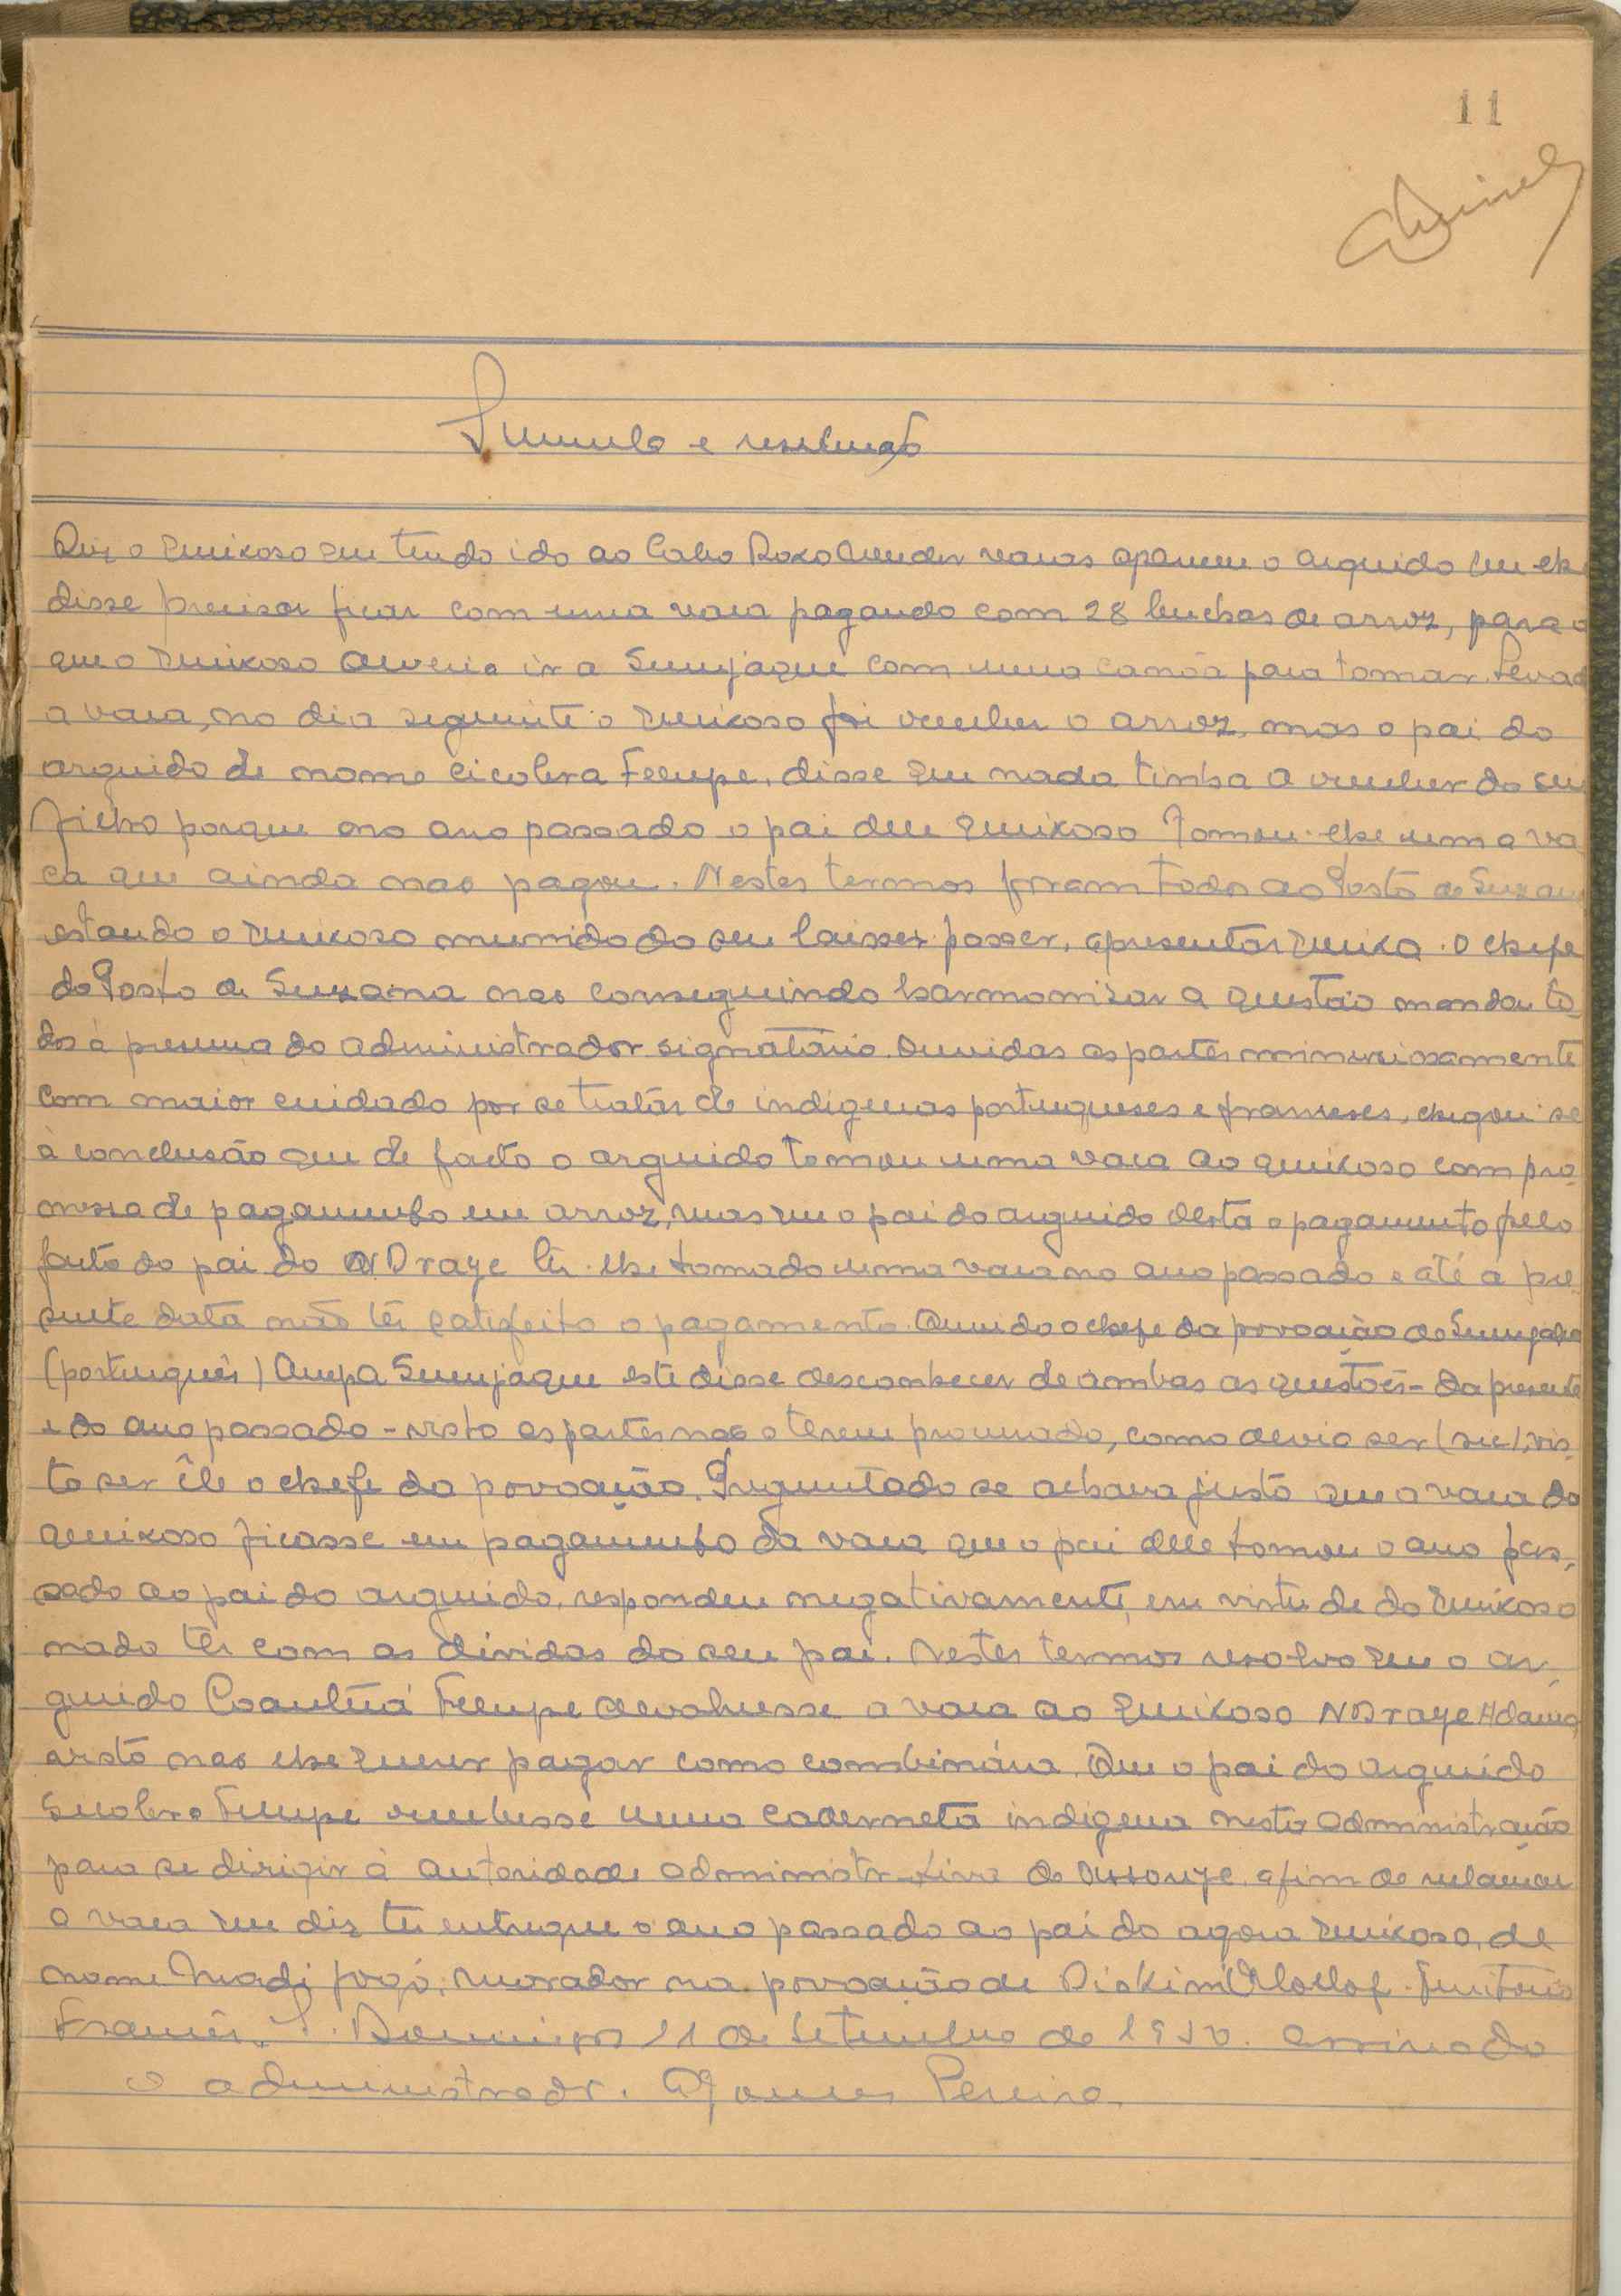 11
Sumula e resolução
Diz o queixoso que tendo ido ao Cabo Roxo vender vacas apareceu o arguido que lhe
disse precisar ficar com uma vaca pagando com 28 buchas de arroz, para o
que o queixoso deveria ir a Sumjaque com uma canôa para tomar. Levada
a vaca, no dia seguinte o queixoso foi receber o arroz, mas o pai do
arguido de nome Cicolera Felupe, disse que nada tinha a receber do seu
filho porque no ano passado o pai dele queixoso tomou-lhe uma va
ca que ainda nao pagou. Nestes termos foram todos ao Posto de Suzana
estando o queixoso munido do seu laisser passer, apresentar queixa. O chefe
do Posto de Suzana nao conseguindo harmonizar a questão mandou to-
dos à presença do administrador signatário. Ouvidas as partes minuciosamente
com maior cuidado por se tratar de indigenas portugueses e franceses, chegou-se
à conclusão que de facto o arguido tomou uma vaca ao queixoso com pro-
messa de pagamento em arroz, mas que o pai do arguido obsta o pagamento pelo
facto do pai do N'Draye ter-lhe tomado uma vaca no ano passado e até à pre-
sente data não ter satisfeito o pagamento. Ouvido o chefe da povoação de Sumjaque
(português) Ampa Sumjaque este disse desconhecer de ambas as questões - da presente
e do ano passado - visto as partes nao o terem procurado, como devia ser (sic), vis-
to ser êle o chefe da povoação. Preguntado se achava justo que a vaca do
queixoso ficasse em pagamento da vaca que o pai dele tomou o ano pas-
sado ao pai do arguido, respondeu negativamente, em virtude do queixoso
nada ter com as dividas do seu pai. Nestes termos resolvo que o ar-
guido Felupe devolvesse a vaca ao queixoso N'Draye
visto nao lhe querer pagar como combinára. Que o pai do arguido
Felupe recebesse uma caderneta indigena nesta administração
para se dirigir à autoridade administrativa de Ussouye, afim de reclamar
a vaca que diz ter entregue o ano passado ao pai do agora queixoso, de
nome morador na povoação de Territorio
Francês. S. Domingos 11 de Setembro de 1950. Assinado
O administrador. Gomes Pereira